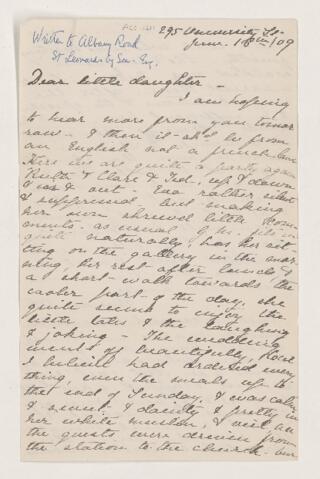 295 University St
June 1 /09
Written to Albany Road
St Leonards by Sea. Esq.
Dear little daughter -
I am hoping
to hear more from you tomor
row - & then it sh'd be from
an English not a french
Here we are quite a party again
Ruth & Clare & Ted, up & down
& in & out - rather silent
& suppressed but making
her own shrewd little com-
ments. as usual
quite naturally, has her sit
ting on the gallery in the mor
ning, her rest after lunch &
a short walk towards the
cooler part of the day. she
quite seems to enjoy the
little tales & the laughing
& joking - The wedding
went off beautifully, Rose
I believe had ordered every
thing, even the meals up to
the end of Sunday, & was calm
& sweet & dainty & pretty in
her white muslin, & veil, all
the guests were driven from
the station to the church - our